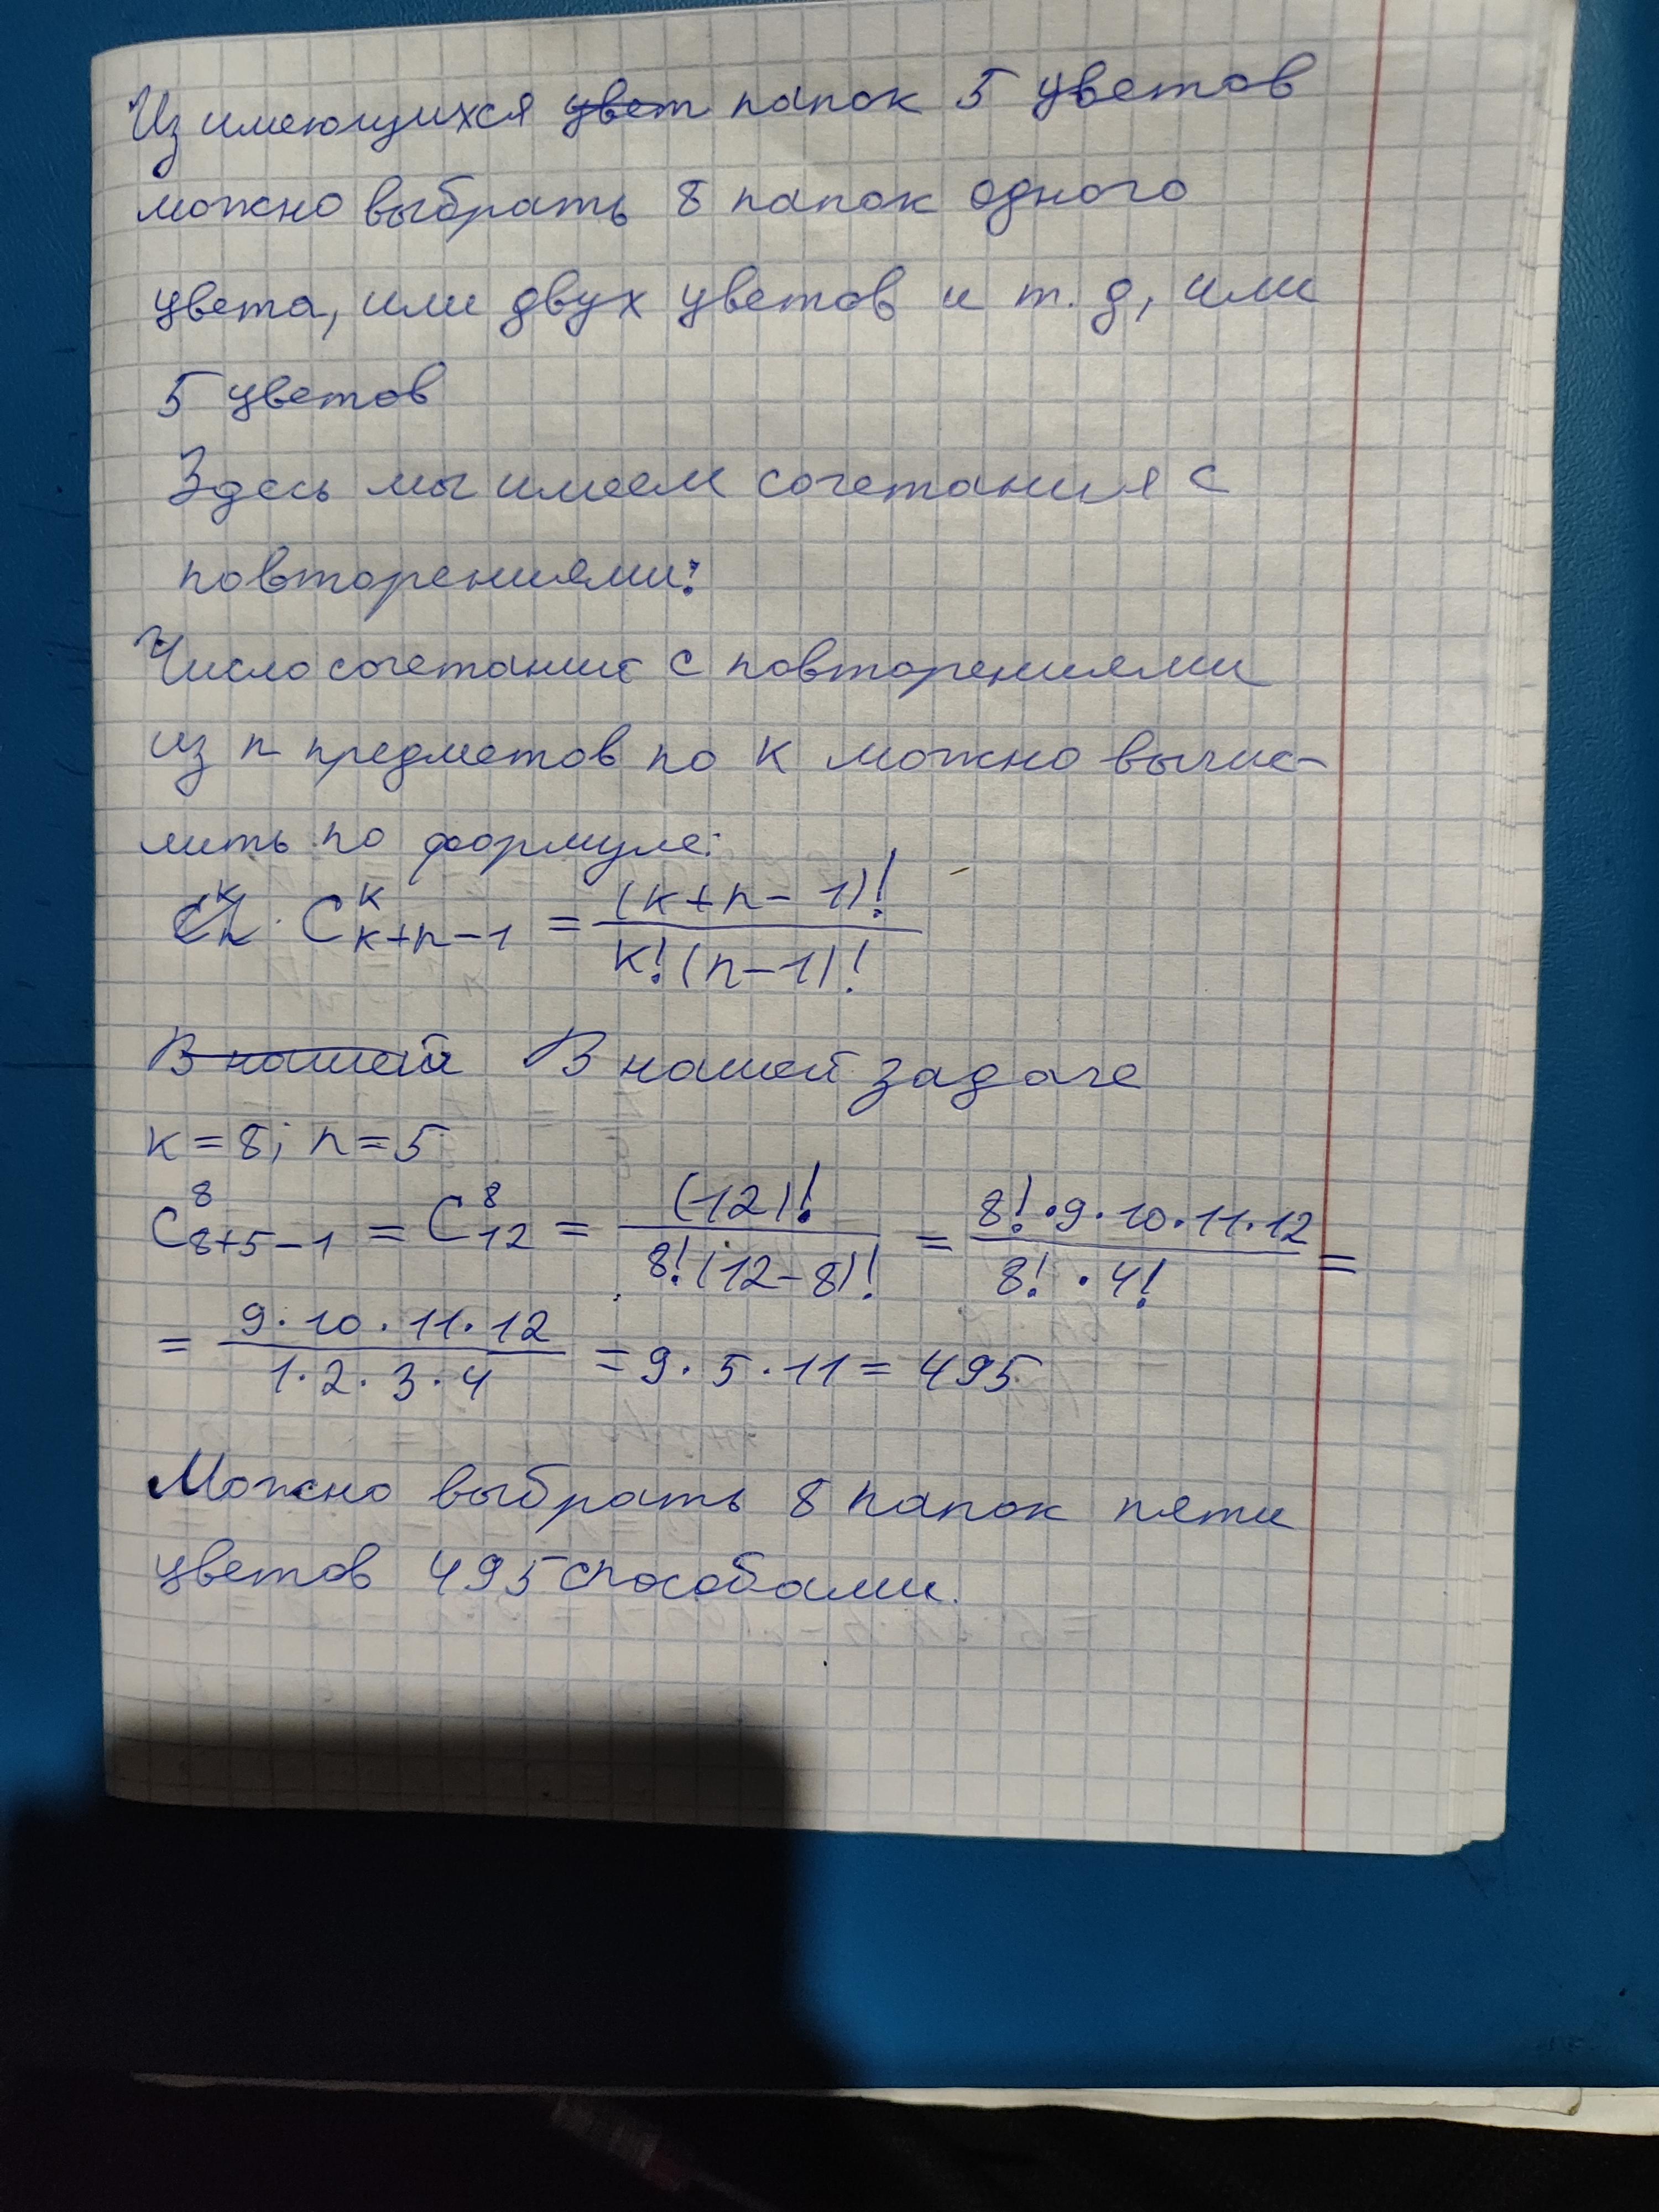 Из имеющихся цвет папок 5 цветов
можно выбрать 8 папок одного
цвета, или двух цветов и т. д, или
5 цветов
Здесь мы имеем сочетания с
повторениями:
Число сочетаний с повторениями
из n предметов по k можно вычис-
лить по формуле:
C_n^k · C_{k+n-1}^k = (k+n-1)! / k!(n-1)!
В нашей В нашей задаче
k=8; n=5
C_{8+5-1}^8 = C_{12}^8 = (12)! / 8!(12-8)! = 8!·9·10·11·12 / 8!·4! =
= 9·10·11·12 / 1·2·3·4 = 9·5·11 = 495
Можно выбрать 8 папок пяти
цветов 495 способами.